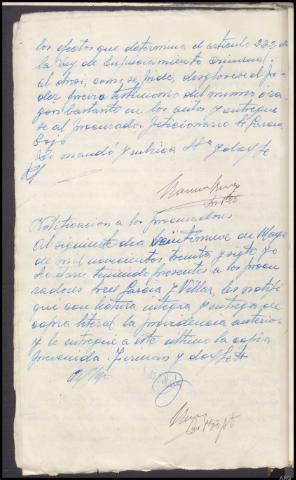 los efectos que determina el artículo 222 de
la Ley de Enjuiciamiento Criminal.
al otrosi, como se pide, desglosese el po-
der previo testimonio del mismo o ra-
zon bastante en los autos y entregue-
se al procurador peticionario Sr Garcia
Lo mandó y rubrica Sª y doy fe
Notificacion a los procuradores
Al siguiente dia veintinueve de Mayo
de mil novecientos treinta y siete yo
teniendo presentes a los procu-
radores Garcia y Villar, les notifi-
qué con lectura integra y entrega de
copia literal la providencia anterior
y le entregué a este ultimo la copia
prevenida. Firman y doy fe